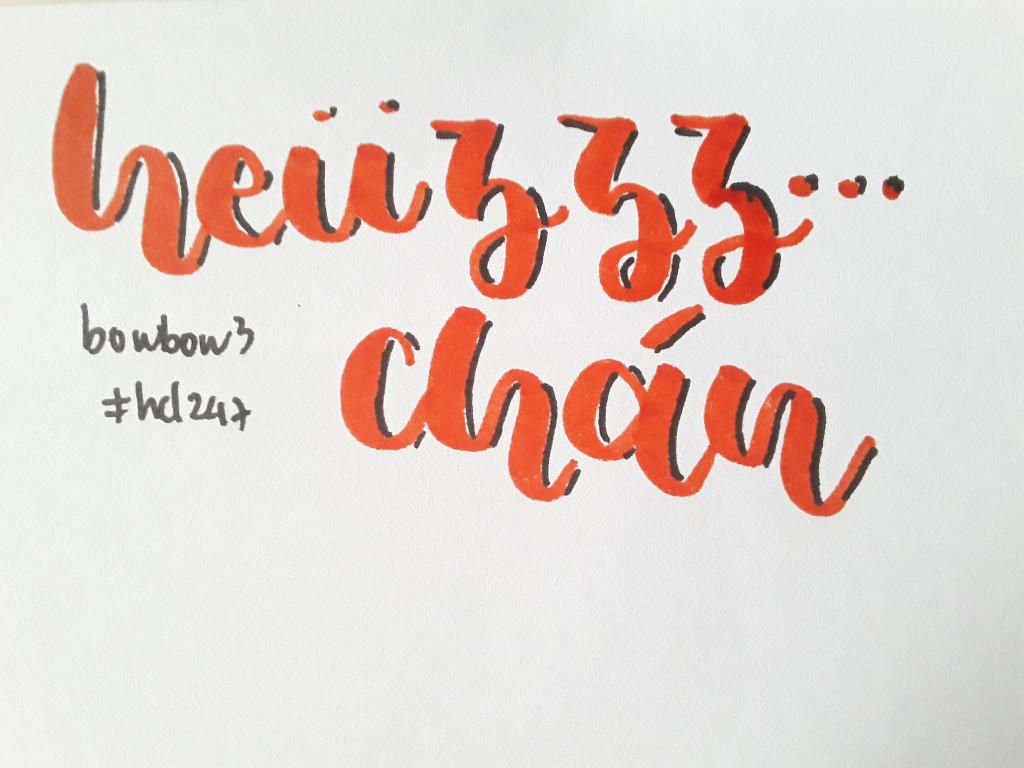 heiizzz...
chán
bowbow3
#hd247